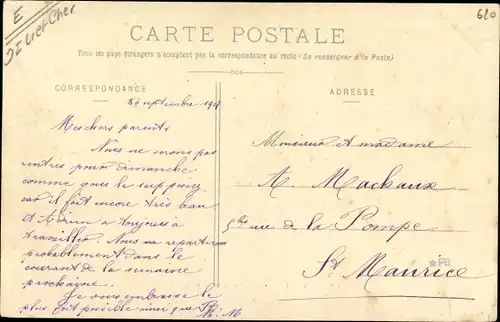 E
Loir et Cher
620
CARTE POSTALE
Tous les pays étrangers n'acceptent pas la correspondance au recto (Se renseigner à la Poste)
CORRESPONDANCE
ADRESSE
24 septembre 190
Mes chers parents
Nous ne irons pas
rentrés pour dimanche
comme vous le supposiez
car il fait encore très beau
et a toujours à
travailler. Nous ne repartirons
probablement dans le
courant de la semaine
prochaine
Je vous embrasse le
plus fort possible ainsi que M
Monsieur et madame
A. Machaux
5 bis rue de la Pompe
St Maurice
PB